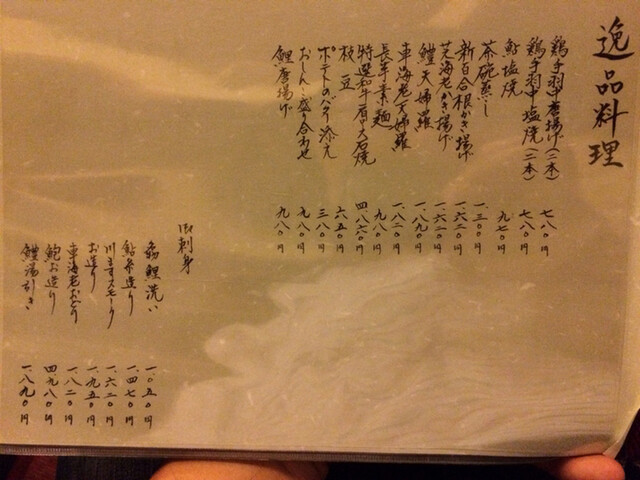 逸品料理
鶏手羽中唐揚げ(二本) 七八〇円
鶏手羽中塩焼(二本) 七八〇円
鮎塩焼 九七〇円
茶碗蒸し 一、三〇〇円
新百合根かき揚げ 一、六二〇円
芝海老かき揚げ 一、六二〇円
鱧天婦羅 一、八九〇円
車海老天婦羅 一、八二〇円
長芋素麺 九八〇円
特選和牛肩ロース石焼 四、八六〇円
枝豆 六五〇円
ポテトのバター添え 三八〇円
おしんこ盛り合わせ 九八〇円
鯉唐揚げ 九八〇円
御刺身
鯉洗い 一、〇五〇円
鮎糸造り 一、四七〇円
川ますスモーク 一、六二〇円
お造り 一、九五〇円
車海老おどり 一、八二〇円
鮑お造り 四、九八〇円
鱧湯引き 一、八九〇円